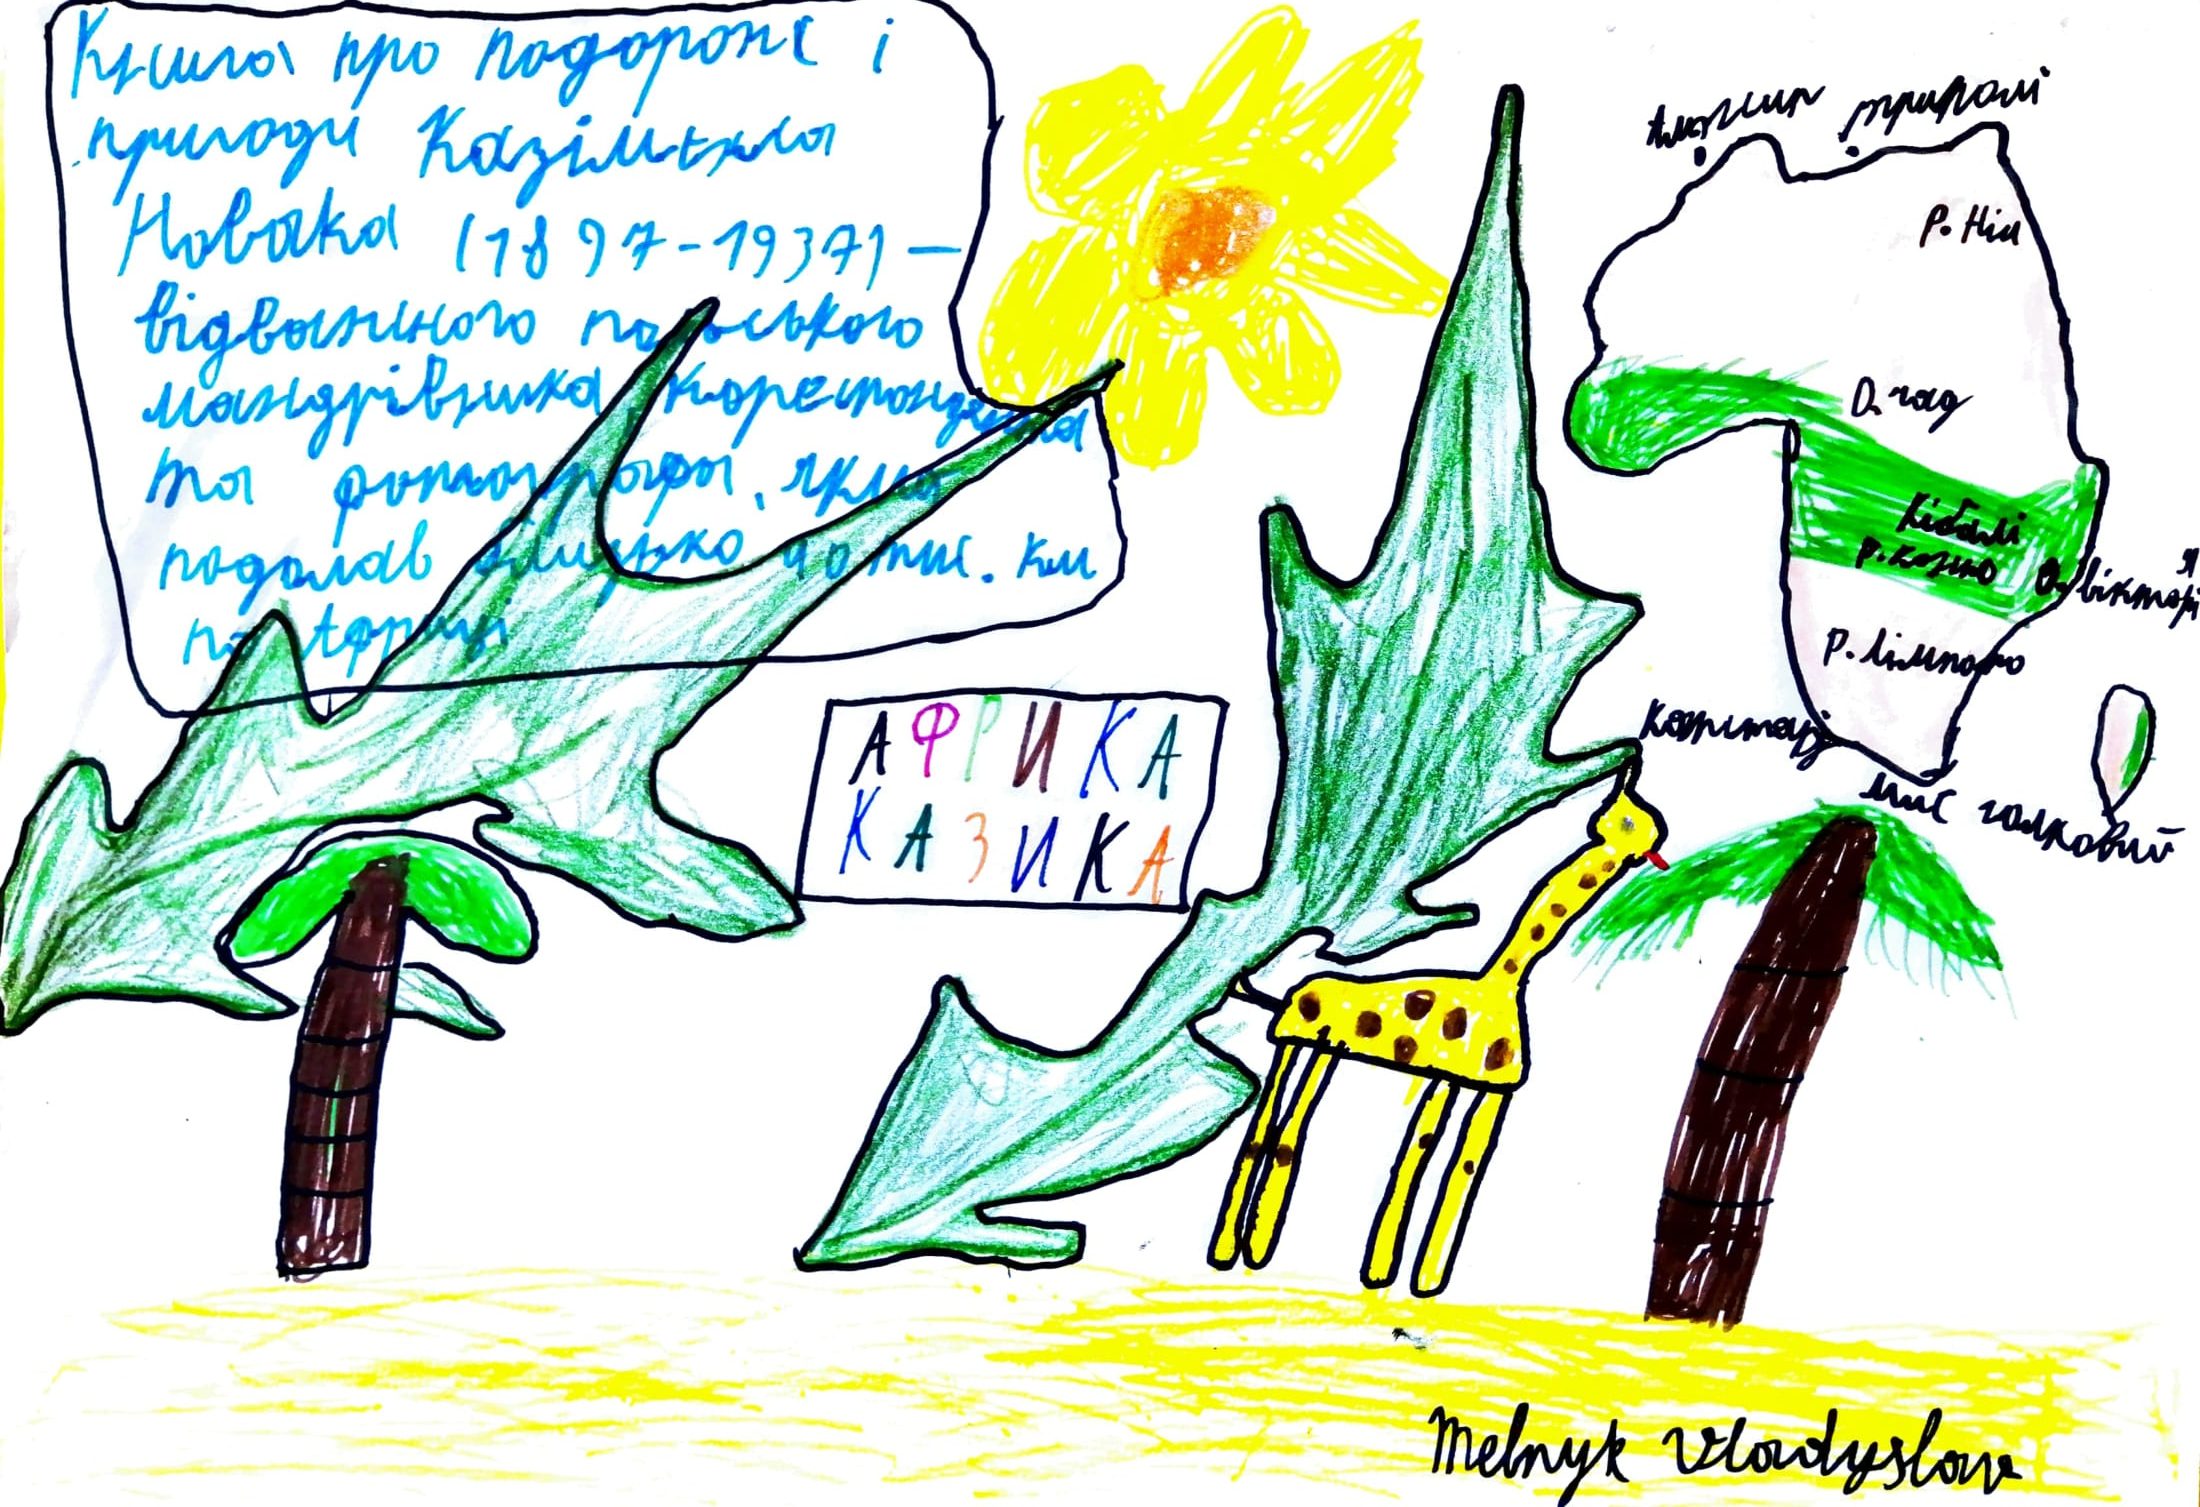 Книга про подорожі і
пригоди Казімежа
Новака (1897-1937) –
відважного польського
мандрівника, кореспондента
та фотографа, який
подолав близько 40 тис. км
по Африці
АФРИКА
КАЗИКА
Алжир Триполі
р. Ніл
О. Чад
Кібалі
р. Конго О. Вікторія
р. Лімпопо
мис голковий
Melnyk Vladyslav